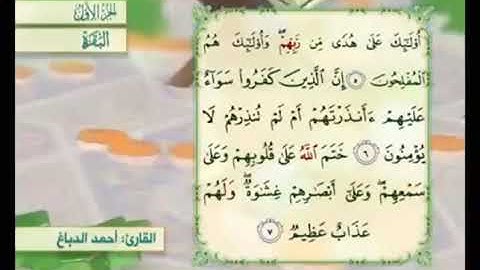 الجزء الأول
البقرة
أُوْلَٰٓئِكَ عَلَىٰ هُدًى مِّن رَّبِّهِمْۖ وَأُوْلَٰٓئِكَ هُمُ
ٱلْمُفْلِحُونَ ٥ إِنَّ ٱلَّذِينَ كَفَرُوا۟ سَوَآءٌ
عَلَيْهِمْ ءَأَنذَرْتَهُمْ أَمْ لَمْ تُنذِرْهُمْ لَا
يُؤْمِنُونَ ٦ خَتَمَ ٱللَّهُ عَلَىٰ قُلُوبِهِمْ وَعَلَىٰ
سَمْعِهِمْۖ وَعَلَىٰٓ أَبْصَٰرِهِمْ غِشَٰوَةٌۖ وَلَهُمْ
عَذَابٌ عَظِيمٌ ٧
القارئ: أحمد الدباغ